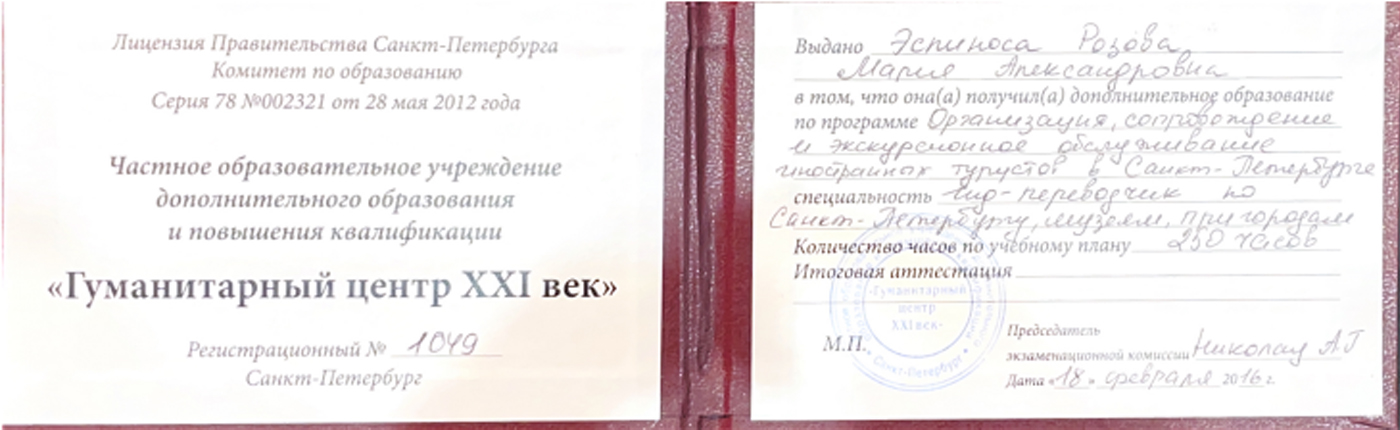 Лицензия Правительства Санкт-Петербурга
Комитет по образованию
Серия 78 №002321 от 28 мая 2012 года
Частное образовательное учреждение
дополнительного образования
и повышения квалификации
«Гуманитарный центр XXI век»
Регистрационный № 1049
Санкт-Петербург
Выдано Эспиноса Розова
Мария Александровна
в том, что она(а) получил(а) дополнительное образование
по программе Организация, сопровождение
и экскурсионное обслуживание
иностранных туристов в Санкт-Петербурге
специальность Гид-переводчик по
Санкт-Петербургу, музеям, пригородам
Количество часов по учебному плану 250 часов
Итоговая аттестация
«Гуманитарный
центр
XXI век»
Санкт-Петербург
М.П.
Председатель
экзаменационной комиссии Николау А Г
Дата «18» февраля 2016 г.